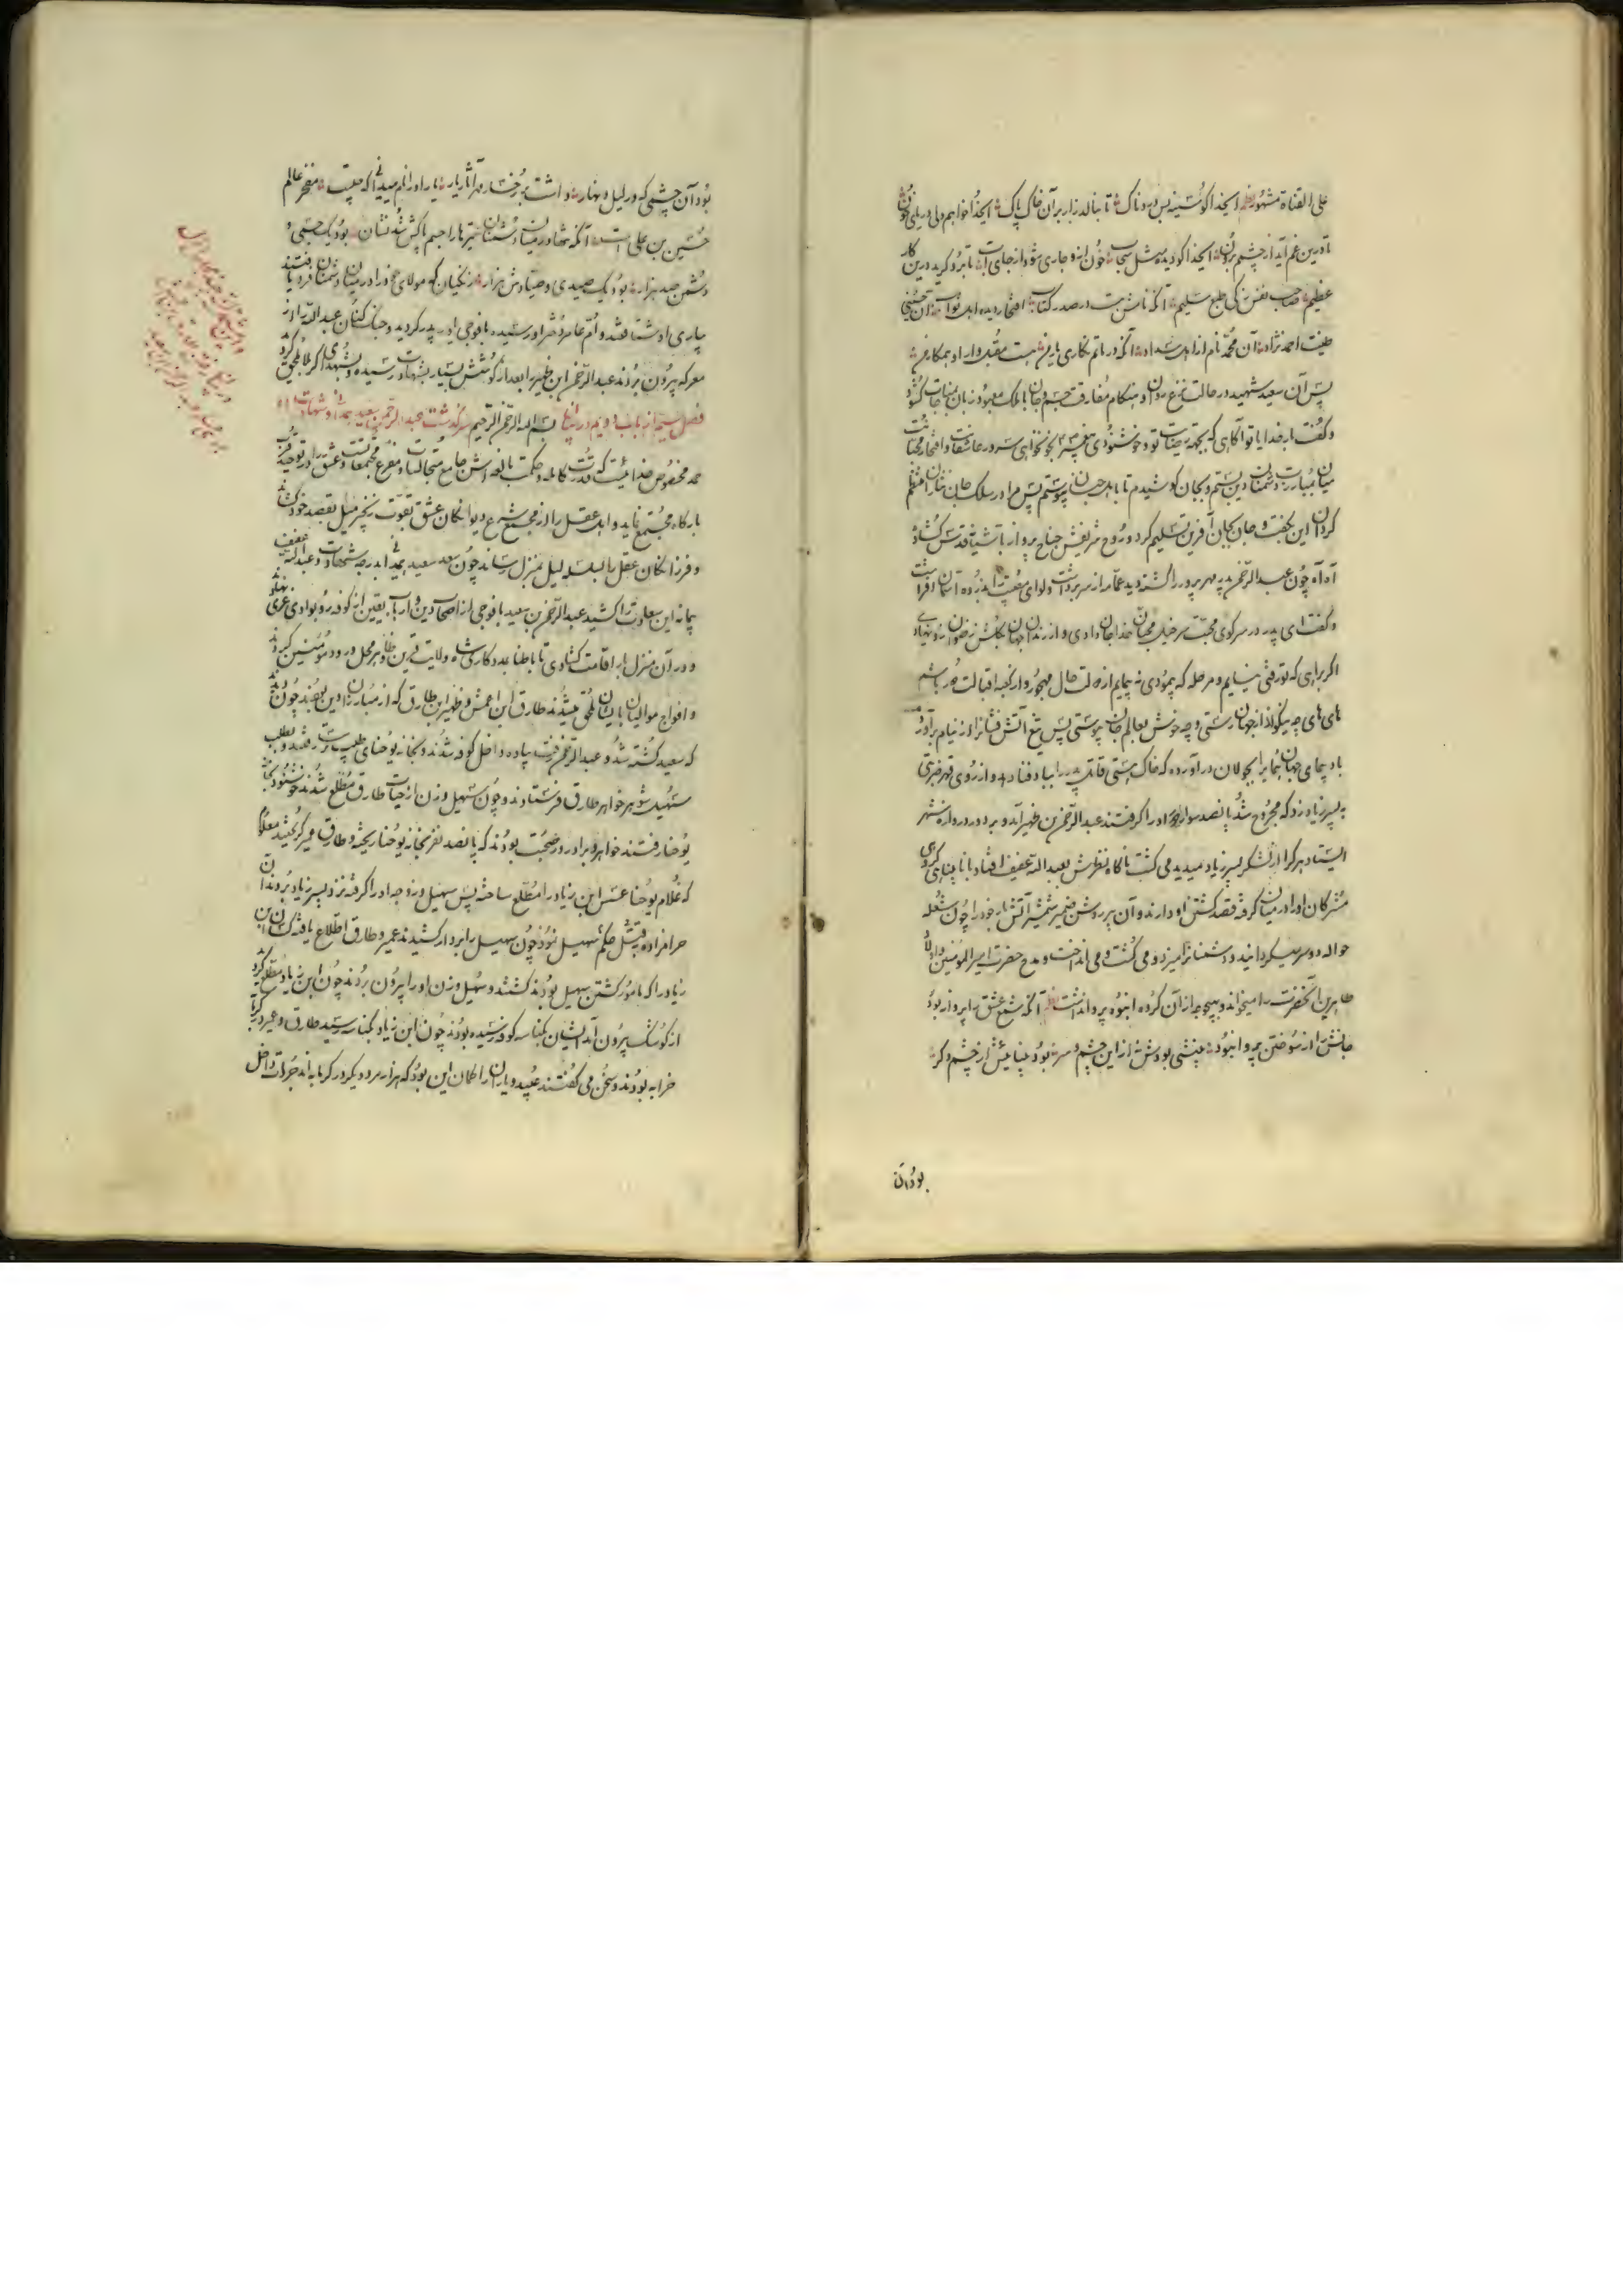 علی القناة مشهور ای خدا کو سینه بس دردناک تا بنالد زار بر آن خاک پاک ای خدا خواهم دلی دریای خون
تا درین غم آید از چشمم برون ای خدا کو دیده مثل سحاب خون ازو جاری شود از جای آب تا برو گرید درین کار
عظیم صاحب نفس زکی طبع سلیم آنکه نامش هست در صدر کتاب افتخار دیده اهل ثواب آن حسینی
طینت احمد نژاد آن محمد نام از اهل سداد آنکه در ماتم نگاری یار من هست مقبل وار او همکار من
پس آن سعید شهید در حالت نزع روان و هنگام مفارقت جسم و جان با ملک معبود زبان بمناجات گشود
و گفت بار خدایا تو آگاهی که بجهة رضای تو و خوشنودی پیغمبر تو بخونخواهی سرور عاشقان و افتخار محبان
میان بمبارزت دشمنان دین بستم و بجان کوشیدم تا باهل جنان پیوستم پس مرا در سلک جان نثاران منتظم
گردان این بگفت و جان بجان آفرین تسلیم کرد و روح شریفش جناح پرواز باشیانه قدس گشاد
آه آه چون عبد الرحمن پدر مهر پرور را کشته دید عمامه از سر برداشت و لوای مصیبت بذروه آسمان افراشت
و گفت ای پدر در سر کوی محبت سرخیل محبان خدا جان دادی و از زندان جهان بگلشن رضوان رو نهادی
اگر براهی که تو رفتی نیایم و مرحله که پیمودی نه پیمایم از دولت حال مهجور و از کعبه اقبالت دور باشم
های های چه نیکو از جهان رستی و چه خوش بعالم جان پیوستی پس تیغ آتش فشانرا از نیام برآورد
باد پیمای جهان پیما را بجولان درآورده که خاک هستی قاتل پدر را بباد فنا دهد و از روی قهر ضربتی
به پسر زیاد زد که مجروح شد پانصد سوار دور او را گرفتند عبد الرحمن بن ظهیر آمد و بر در دروازه شهر
ایستاد هر کرا از لشکر پسر زیاد میدید می کشت ناگاه نظرش بعبد الله عفیف افتاد با نابینائی گروهی
مشرکان او را در میان گرفته قصد کشتن او دارند و آن پیر روشن ضمیر شمشیر آتشبار خود را چون شعله
حواله دور سر میگردانید و دشمنانرا میزد و می کشت و می انداخت و مدح حضرت امیر المؤمنین و اولاد
طاهرین آنحضرت را میخواند و بهیچوجه از آن گروه انبوه پروا نداشت آنکه شمع عشق را پروانه بود
جانش را از سوختن پروا نبود بینشی بودش نه از این چشم و سر بود بینائیش از چشم دگر
بود آن
بود آن چشمی که در لیل و نهار داشت بر رخسار مهر آثار یار یار او دانم میدانی که کیست مفخر عالم
حسین بن علی است آنکه تنها در میان دشمنان تیرها را جسم پاکش شد نشان بود یک جسمی و
دشمن صد هزار بود یک صیدی و صیادش هزار زنگیان که مولای خود را در میان دشمنان فرد یافتند
بیاری او شتافتند و ام عامر دختر او رسیده با فوجی امداد پدر کردید و جنگ کنان عبد الله را از
معرکه بیرون بردند عبد الرحمن ابن ظهیر بعد از کوشش بسیار بشهادت رسیده و بشهدای کربلا ملحق کردید
فصل سیم از باب دویم در بیان بسم الله الرحمن الرحیم سرگذشت عبد الرحمن بن سعید همدانی و شهادت او
حمد مخصوص خدائیست که قدرت کامله و حکمت بالغه اش جامع متخالفات و مفرق مجتمعات و عشق را در توحید
بارگاه مجتمع نماید و اهل عقل را از مجمع شرع دیوانگان عشق بقوت زنجیر میل بقصد خود کشاند
و فرزانگان عقل را بسلسله لیل بمنزل رساند چون سعید همدانی بدرجه شهادت و عبد الله عفیف
پیمانه این سعادت را کشید عبد الرحمن بن سعید با فوجی از اصحاب دین و ارباب یقین از کوفه رو بوادی غری نهاد
و در آن منزل بار اقامت گشادی تا باطنا بمددکاری شاه ولایت قرین ظاهر محل ورود مؤمنین کردند
و افواج موالیان بایشان ملحق میشدند طارق ابن اعمش و ظهیر ابن طارق که از مبارزان دین بودند چون
که سعید کشته شد و عبد الرحمن رفت پیاده داخل کوفه شدند و بخانه یوحنای طبیب ترسا رفتند و بطلب
سهیل شوهر خواهر طارق فرستادند و چون سهیل و زن از حیات طارق مطلع شدند خوشنود بخانه
یوحنا رفتند خواهر و برادر در صحبت بودند که پانصد نفر بخانه یوحنا ریخته و طارق و عمیر گریختند معلوم
که غلام یوحنا عسس ابن زیاد را مطلع ساخته پس سهیل و زوجه او را گرفته نزد پسر زیاد بردند آن
حرامزاده بقتل حکم سهیل نمود چون سهیل را بردار کشیدند عمیر و طارق اطلاع یافته کسان ابن
زیاد را که مامور کشتن سهیل بودند کشتند و سهیل و زن او را بیرون بردند چون ابن زیاد مطلع کردید
از کوشک بیرون آمد ایشان بکناسه کوفه رسیده بودند چون ابن زیاد بکناسه رسید طارق و عمیر در
خرابه بودند و سخن می گفتند عبید و یاران را گمان این بود که هزار مرد دیگر در گرمابه اند جرات داخل